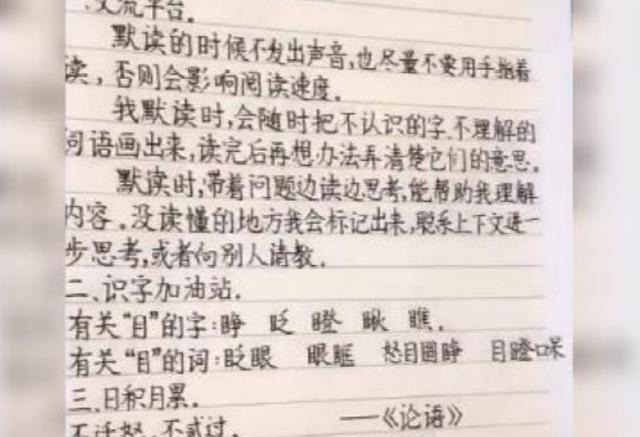 一、交流平台。
默读的时候不发出声音,也尽量不要用手指着
读,否则会影响阅读速度。
我默读时,会随时把不认识的字、不理解的
词语画出来,读完后再想办法弄清楚它们的意思。
默读时,带着问题边读边思考,能帮助我理解
内容。没读懂的地方我会标记出来,联系上下文进一
步思考,或者向别人请教。
二、识字加油站。
有关“目”的字:睁 眨 瞪 瞅 瞧。
有关“目”的词:眨眼 眼眶 怒目圆睁 目瞪口呆
三、日积月累。
不迁怒,不贰过。 ——《论语》